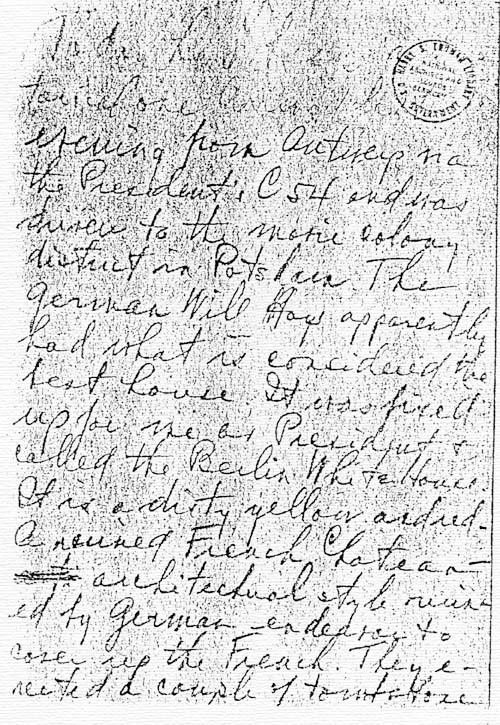 HARRY S. TRUMAN LIBRARY
evening from Antwerp via
the President's C 54 and was
driven to the movie colony
district in Potsdam. The
German Will Hays apparently
had what is considered the
best house. It was fixed
up for me as President &
called the Berlin White House.
It is a dirty yellow and red.
A ruined French Chateau-
architectual style ruin-
ed by German endeavor to
cover up the French. They e-
rected a couple of tombstone